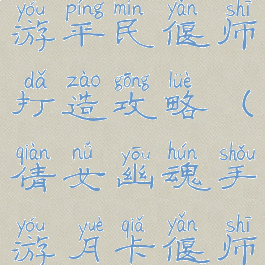 yóu píng mín yǎn shī
游平民偃师
dǎ zào gōng lüè
打造攻略（
qiàn nǚ yōu hún shǒu
倩女幽魂手
yóu yuè qiǎ yǎn shī
游月卡偃师